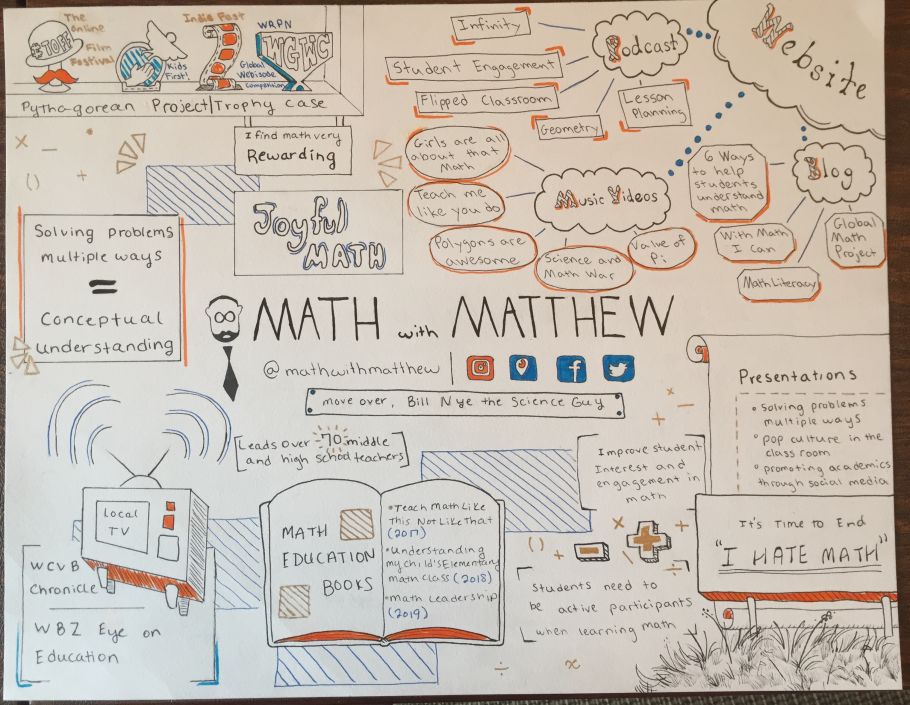 The
Online
Film
Festival
TOFF
Kids
First!
Indie Fest
WRPN
WGWC
Global
Webisode
Competition
Pythagorean Project/Trophy case
I find math very
Rewarding
Joyful
MATH
Solving problems
multiple ways
=
Conceptual
Understanding
Podcast
Infinity
Student Engagement
Flipped Classroom
Geometry
Lesson
Planning
Website
Music Videos
Girls are all
about that
Math
Teach me
like you do
Polygons are
awesome
Science and
Math War
Value of
Pi
Blog
6 Ways
to help
students
understand
math
With Math
I Can
Math Literacy
Global
Math
Project
MATH with MATTHEW
@mathwithmatthew
move over, Bill Nye the Science Guy
Leads over ~70 middle
and high school teachers
Improve student
Interest and
engagement in
math
Presentations
• Solving problems
multiple ways
• pop culture in the
class room
• promoting academics
through social media
It's Time to End
"I HATE MATH"
Local
TV
WCVB
Chronicle
WBZ Eye on
Education
MATH
EDUCATION
BOOKS
• Teach Math Like
This Not Like That
(2017)
• Understanding
my child's Elementary
math class (2018)
• math Leadership
(2019)
Students need to
be active participants
when learning math